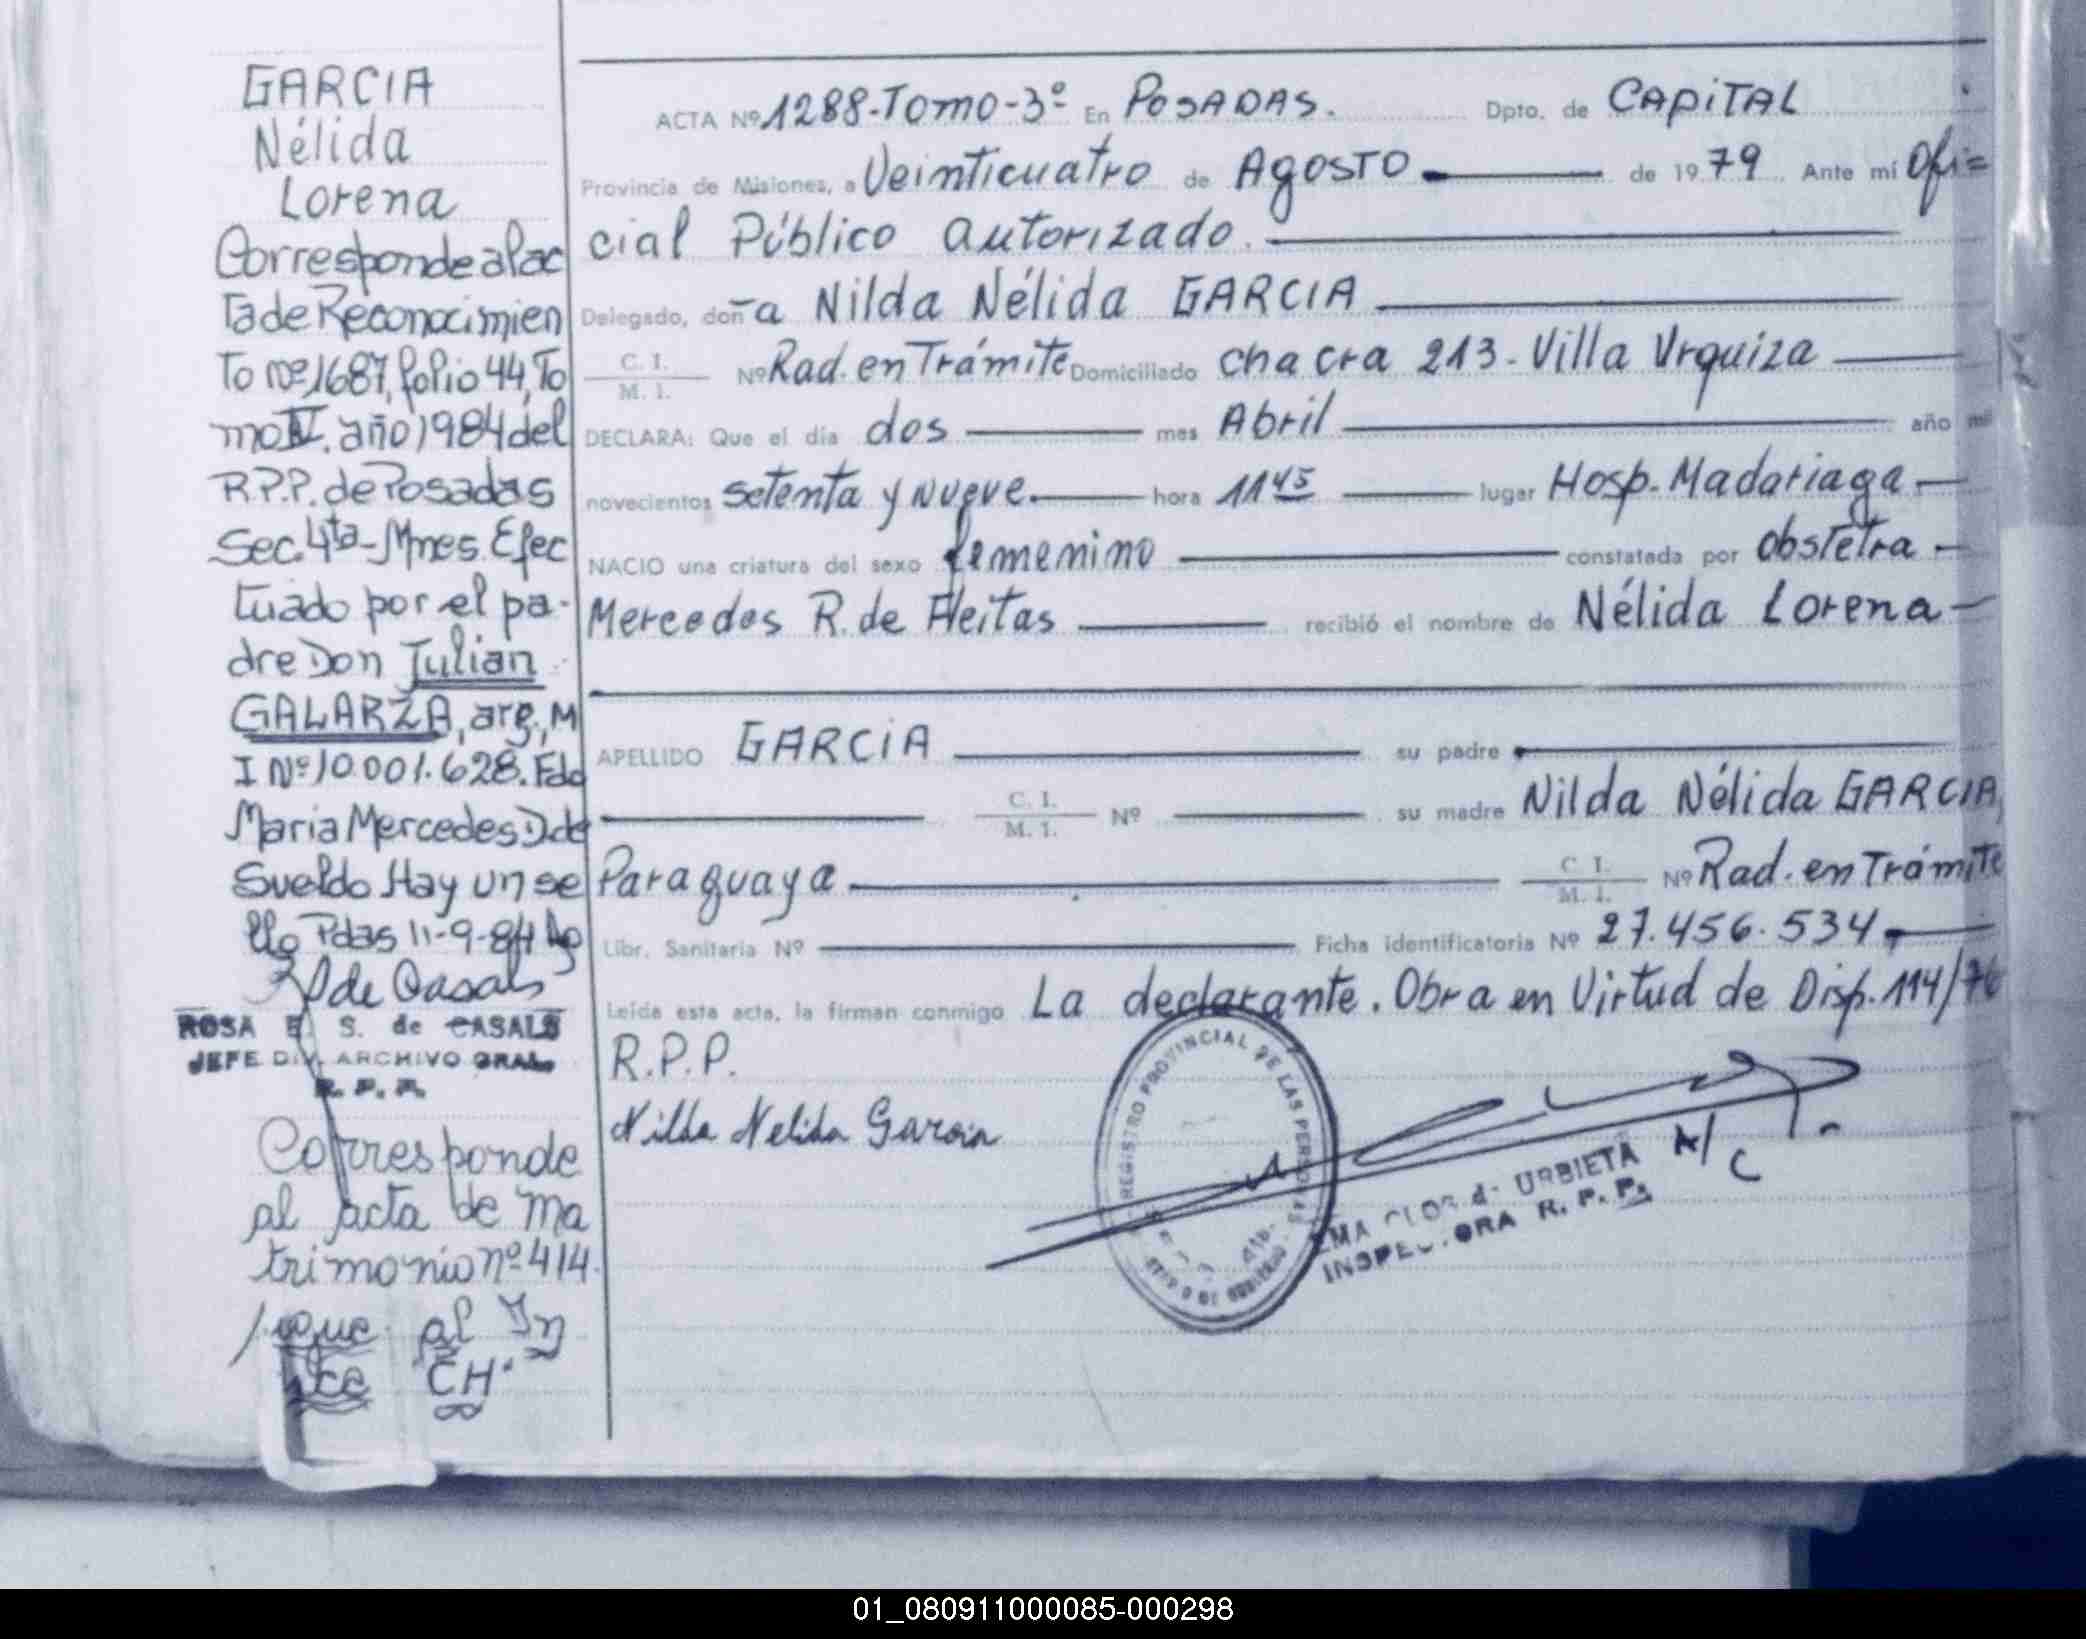 GARCIA
Nélida
Lorena
Corresponde al ac
ta de Reconocimien
To nº 1687, folio 44, To
mo IV. año 1984 del
R.P.P. de Posadas
Sec. 4ta - Mnes. Efec
tuado por el pa-
dre Don Julian
GALARZA, arg., M
I Nº 10.001.628. Fdo
Maria Mercedes D de
Sueldo Hay un se
llo Pdas 11-9-84
de Casals
ROSA E. S. de CASALS
JEFE DIV. ARCHIVO GRAL.
R. P. P.
Corresponde
al acta de ma
trimonio nº 414
al
CH.
ACTA Nº 1288-Tomo-3º En POSADAS. Dpto. de CAPITAL
Provincia de Misiones, a Veinticuatro de Agosto de 1979 Ante mí Ofi=
cial Público autorizado.
Delegado, doña Nilda Nélida GARCIA
C. I.
M. I. Nº Rad. en Trámite Domiciliado chacra 213 - Villa Urquiza
DECLARA: Que el día dos mes Abril año mil
novecientos setenta y nueve. hora 11 45 lugar Hosp. Madariaga
NACIO una criatura del sexo femenino constatada por obstetra
Mercedes R. de Fleitas recibió el nombre de Nélida Lorena
APELLIDO GARCIA su padre
C. I.
M. I. Nº su madre Nilda Nélida GARCIA,
Paraguaya C. I.
M. I. Nº Rad. en Trámite
Libr. Sanitaria Nº Ficha identificatoria Nº 27.456.534
Leída esta acta, la firman conmigo La declarante. Obra en Virtud de Disp. 114/76
R.P.P.
Nilda Nelida Garcia
REGISTRO PROVINCIAL DE LAS PERSONAS
A/C
URBIETA
INSPECTORA R. P. P.
01_080911000085-000298